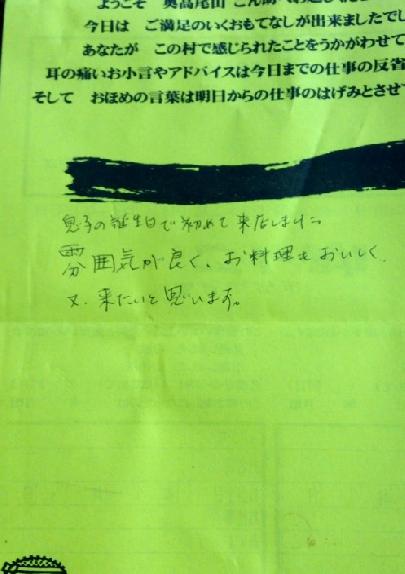 ようこそ 奥高尾山
今日は ご満足のいくおもてなしが出来ましたでし
あなたが この村で感じられたことをうかがわせて
耳の痛いお小言やアドバイスは今日までの仕事の反省
そして おほめの言葉は明日からの仕事のはげみとさせ
息子の誕生日で初めて来店しました
雰囲気が良く、お料理もおいしく、
又、来たいと思います。